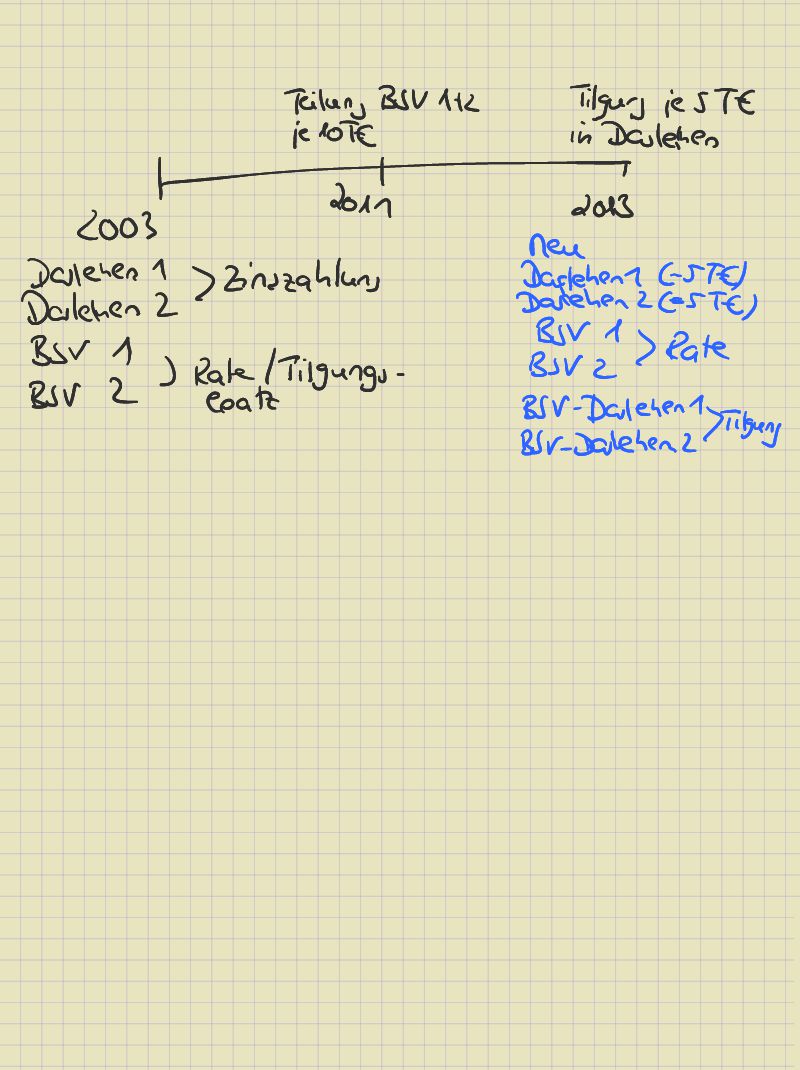 Teilung BSV 1+2
je 10T€
Tilgung je 5T€
in Darlehen
2003
2011
2013
Darlehen 1
Darlehen 2
> Zinszahlung
BSV 1
BSV 2
) Rate/Tilgungs-
ersatz
Neu
Darlehen 1 (-5T€)
Darlehen 2 (-5T€)
BSV 1
BSV 2
> Rate
BSV-Darlehen 1
BSV-Darlehen 2
> Tilgung